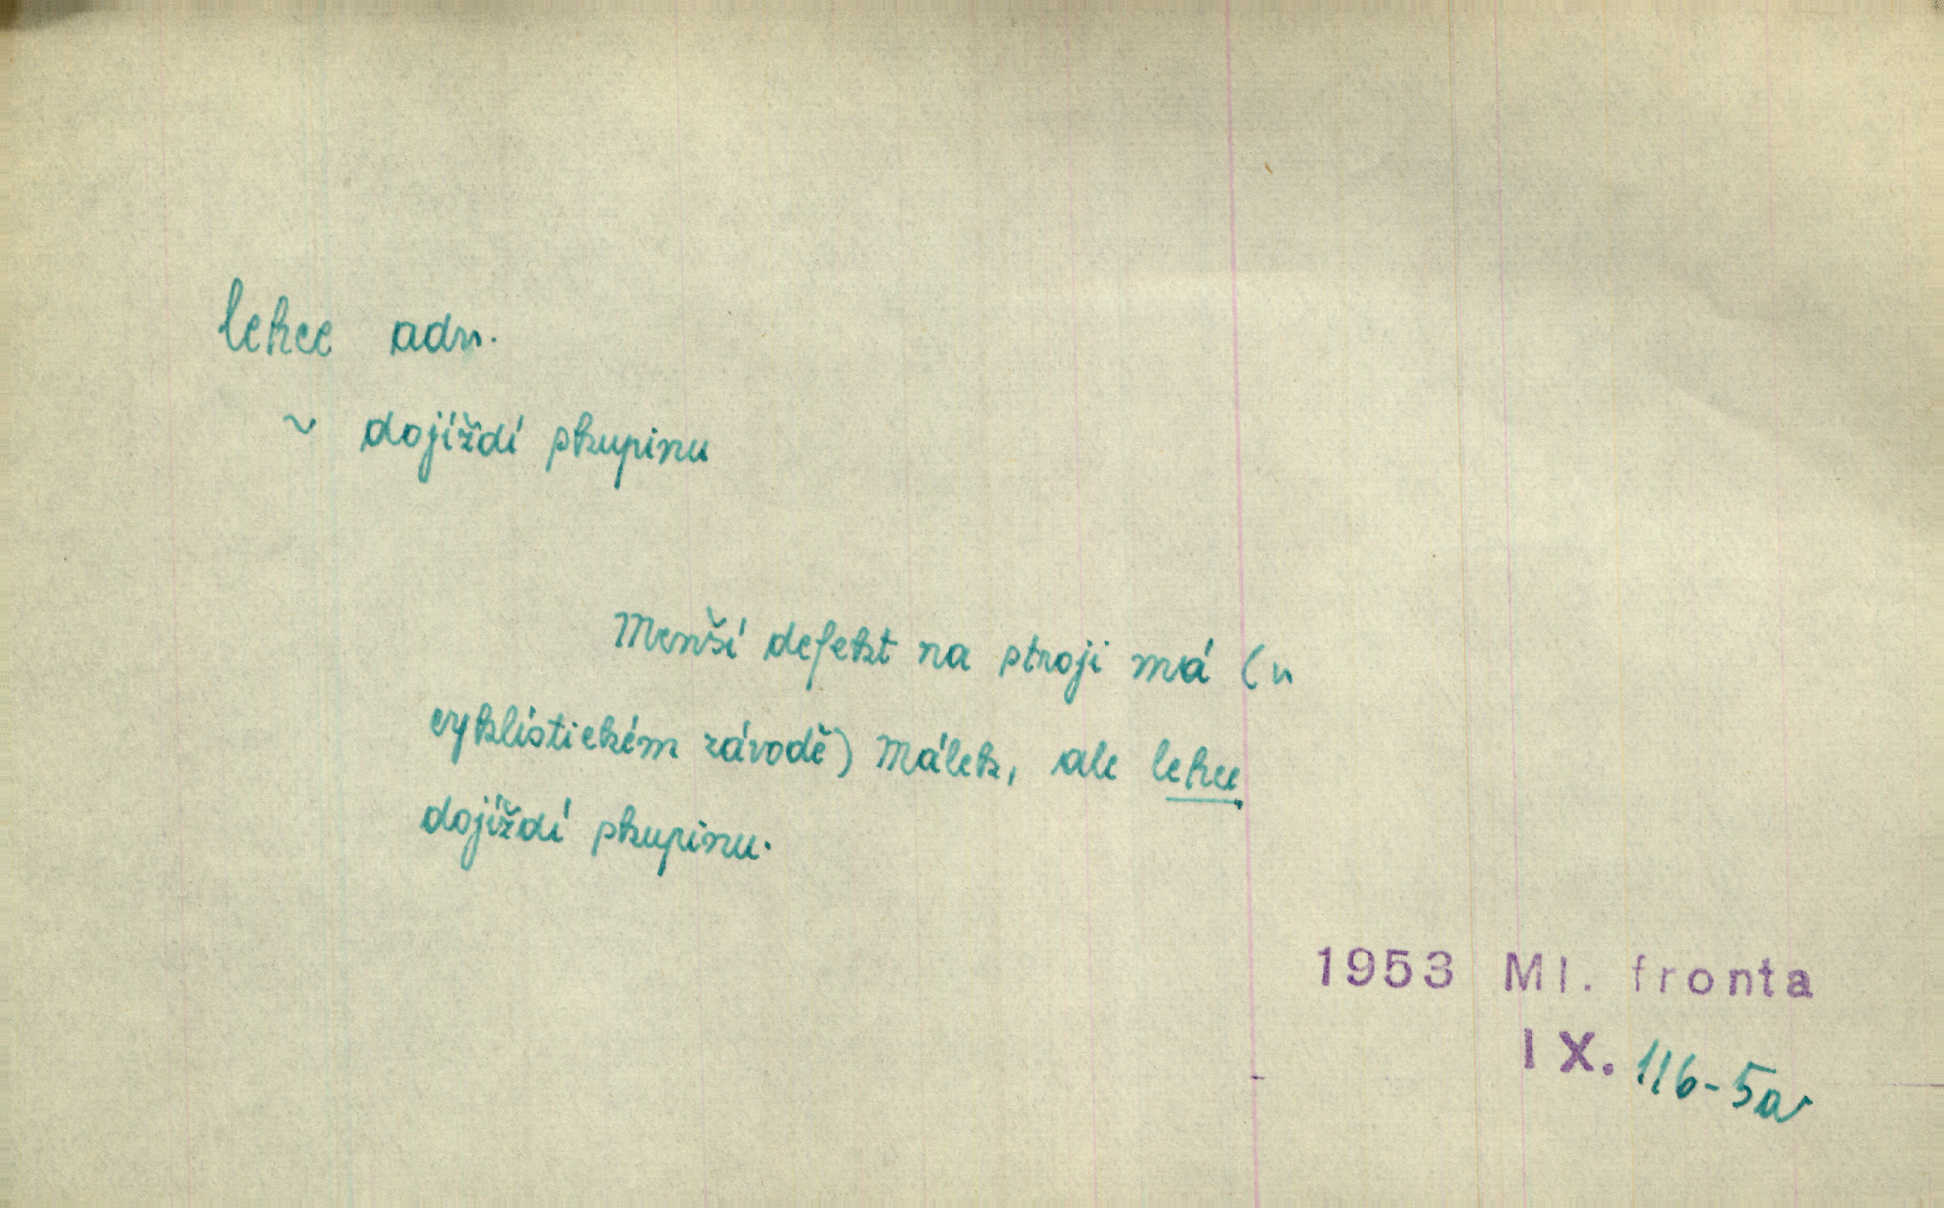 lehce adv.
~ dojíždí skupinu
Menší defekt na stroji má (v
cyklistickém závodě) Málek, ale lehce
dojíždí skupinu.
1953 Ml. fronta
IX. 116-5a